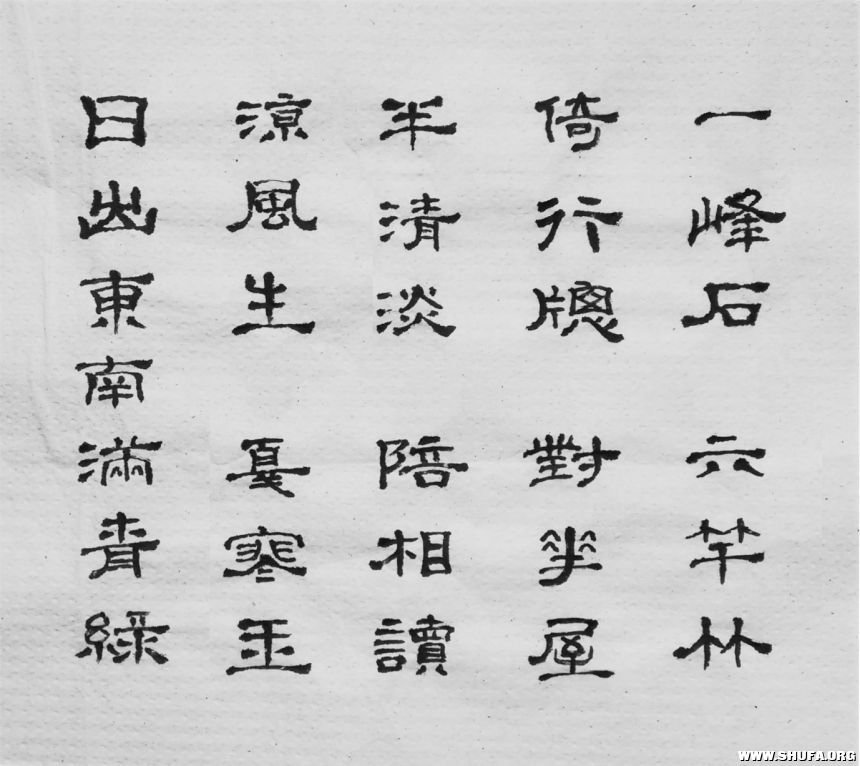 一峰石 六竿竹
倚行牕 對華屋
半清淡 陪相讀
涼風生 戛寒玉
日出東南滿青綠
WWW.SHUFA.ORG